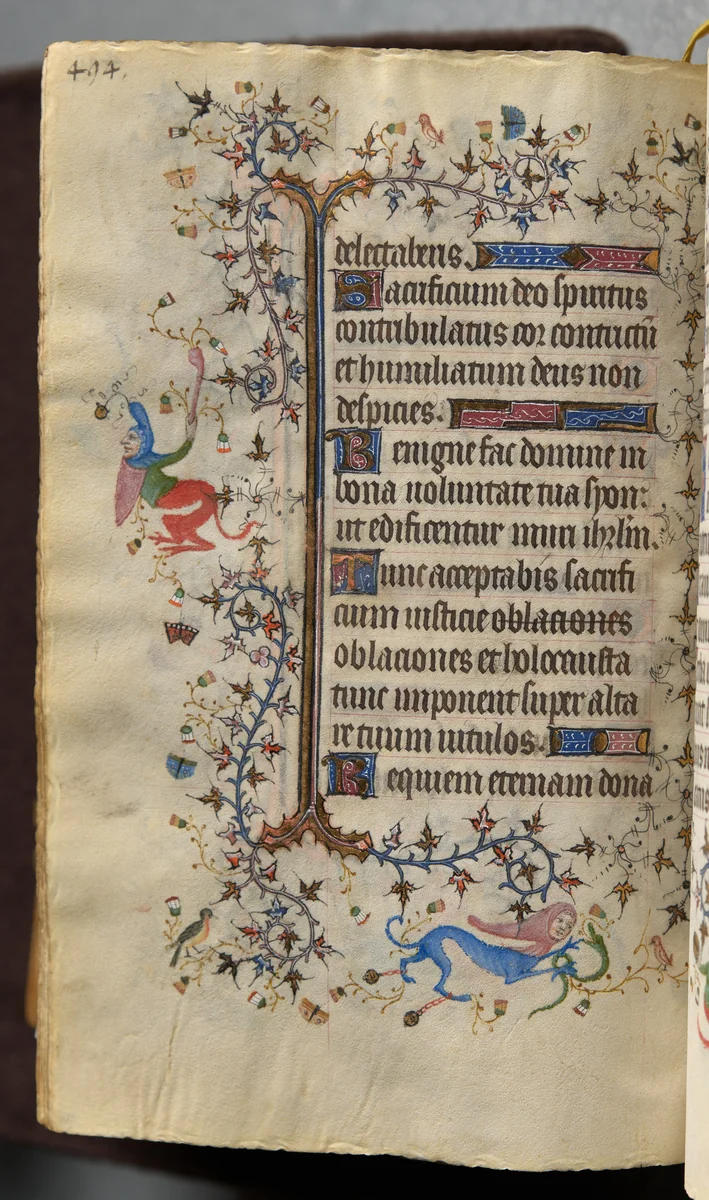 494.
delectaberis.
Sacrificium deo spiritus
contribulatus cor contritū
et humiliatum deus non
despicies.
Benigne fac domine in
bona uoluntate tua syon:
ut edificentur muri ihrlm̄.
Tunc acceptabis sacrifi
cium iusticie oblaciones
oblaciones et holocausta
tunc imponent super alta
re tuum uitulos.
Requiem eternam dona